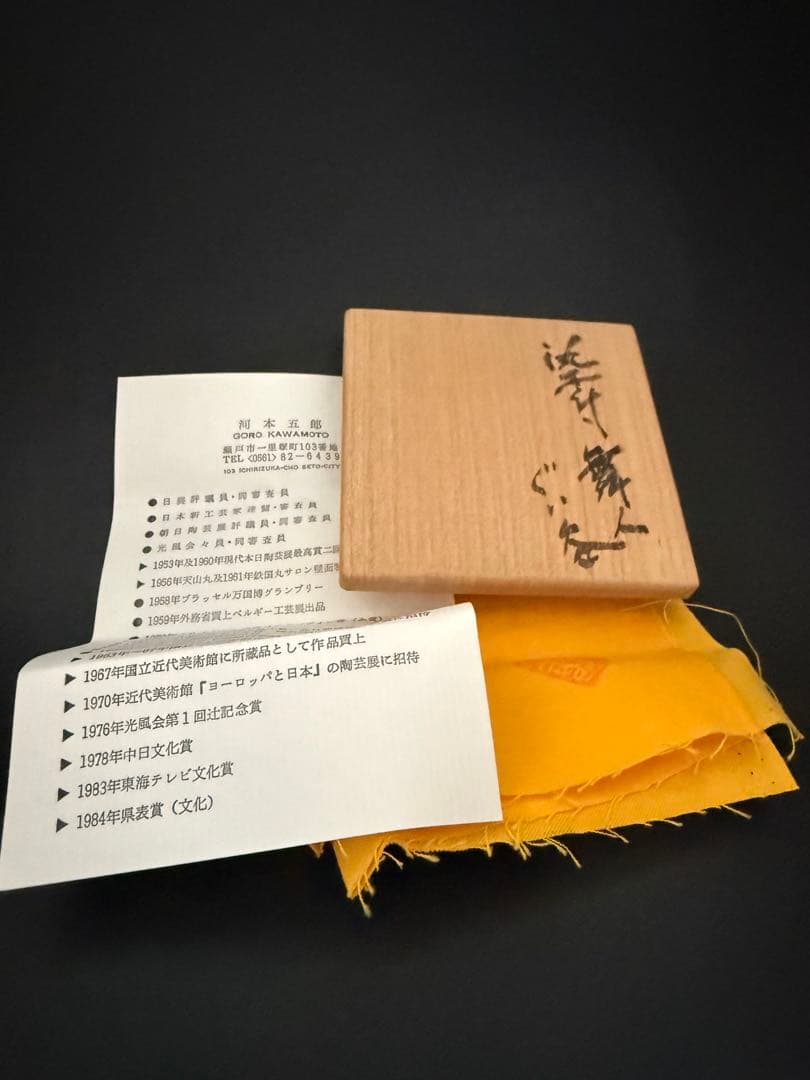 河本五郎
GORO KAWAMOTO
瀬戸市一里塚町103番地
TEL〈0561〉82-6439
103 ICHIRIZUKA-CHO SETO-CITY
● 日展評議員・同審査員
● 日本新工芸家連盟・審査員
● 朝日陶芸展評議員・同審査員
● 光風会々員・同審査員
▶ 1953年及1960年現代本日陶芸展最高賞二回
▶ 1956年天山丸及1961年鉄国丸サロン壁面
● 1958年ブラッセル万国博グランプリー
● 1959年外務省買上ベルギー工芸展出品
▶ 1967年国立近代美術館に所蔵品として作品買上
▶ 1970年近代美術館『ヨーロッパと日本』の陶芸展に招待
▶ 1976年光風会第1回辻記念賞
▶ 1978年中日文化賞
▶ 1983年東海テレビ文化賞
▶ 1984年県表賞（文化）
染付
舞人
ぐい呑